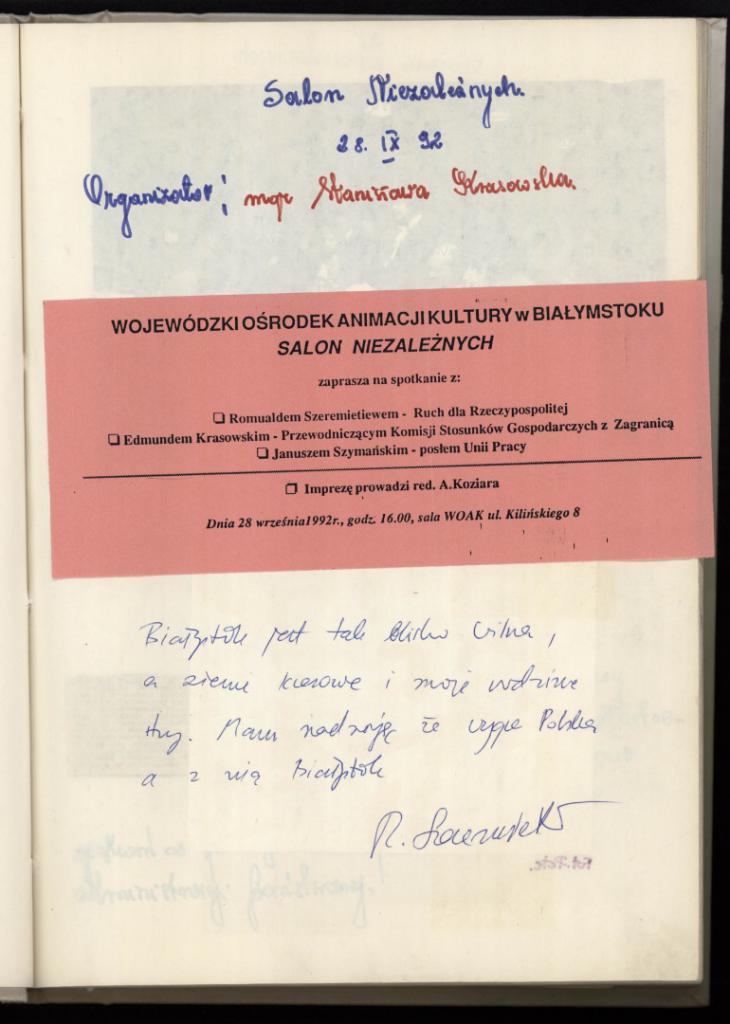 Salon Niezależnych.
28. IX 92
Organizator: mgr Stanisława Krasowska.
WOJEWÓDZKI OŚRODEK ANIMACJI KULTURY w BIAŁYMSTOKU
SALON NIEZALEŻNYCH
zaprasza na spotkanie z:
❏ Romualdem Szeremietiewem - Ruch dla Rzeczypospolitej
❏ Edmundem Krasowskim - Przewodniczącym Komisji Stosunków Gospodarczych z Zagranicą
❏ Januszem Szymańskim - posłem Unii Pracy
❐ Imprezę prowadzi red. A.Koziara
Dnia 28 września1992r., godz. 16.00, sala WOAK ul. Kilińskiego 8
Białystok jest tak blisko Wilna,
a ziemie kresowe i moje rodzinne
Mam nadzieję że Polska
a z nią Białystok
R.